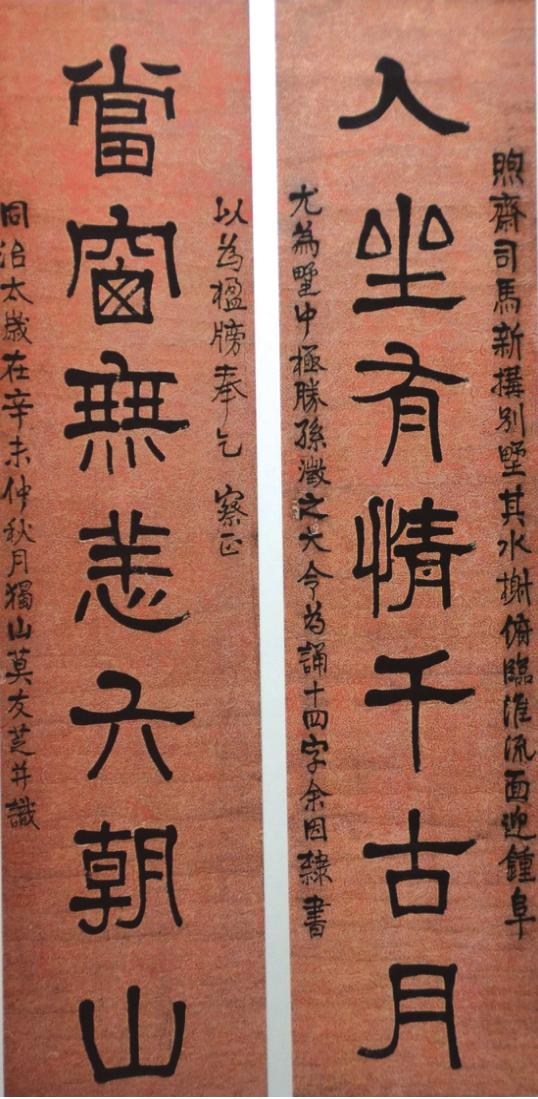 煦齋司馬新撰別墅其水榭俯臨淮流面迎鍾阜
人坐有情千古月
尤為墅中極勝孫澂之大令為誦十四字余因隸書
以為楹牓奉乞 察正
當窗無恙六朝山
同治太歲在辛未仲秋月獨山莫友芝并識